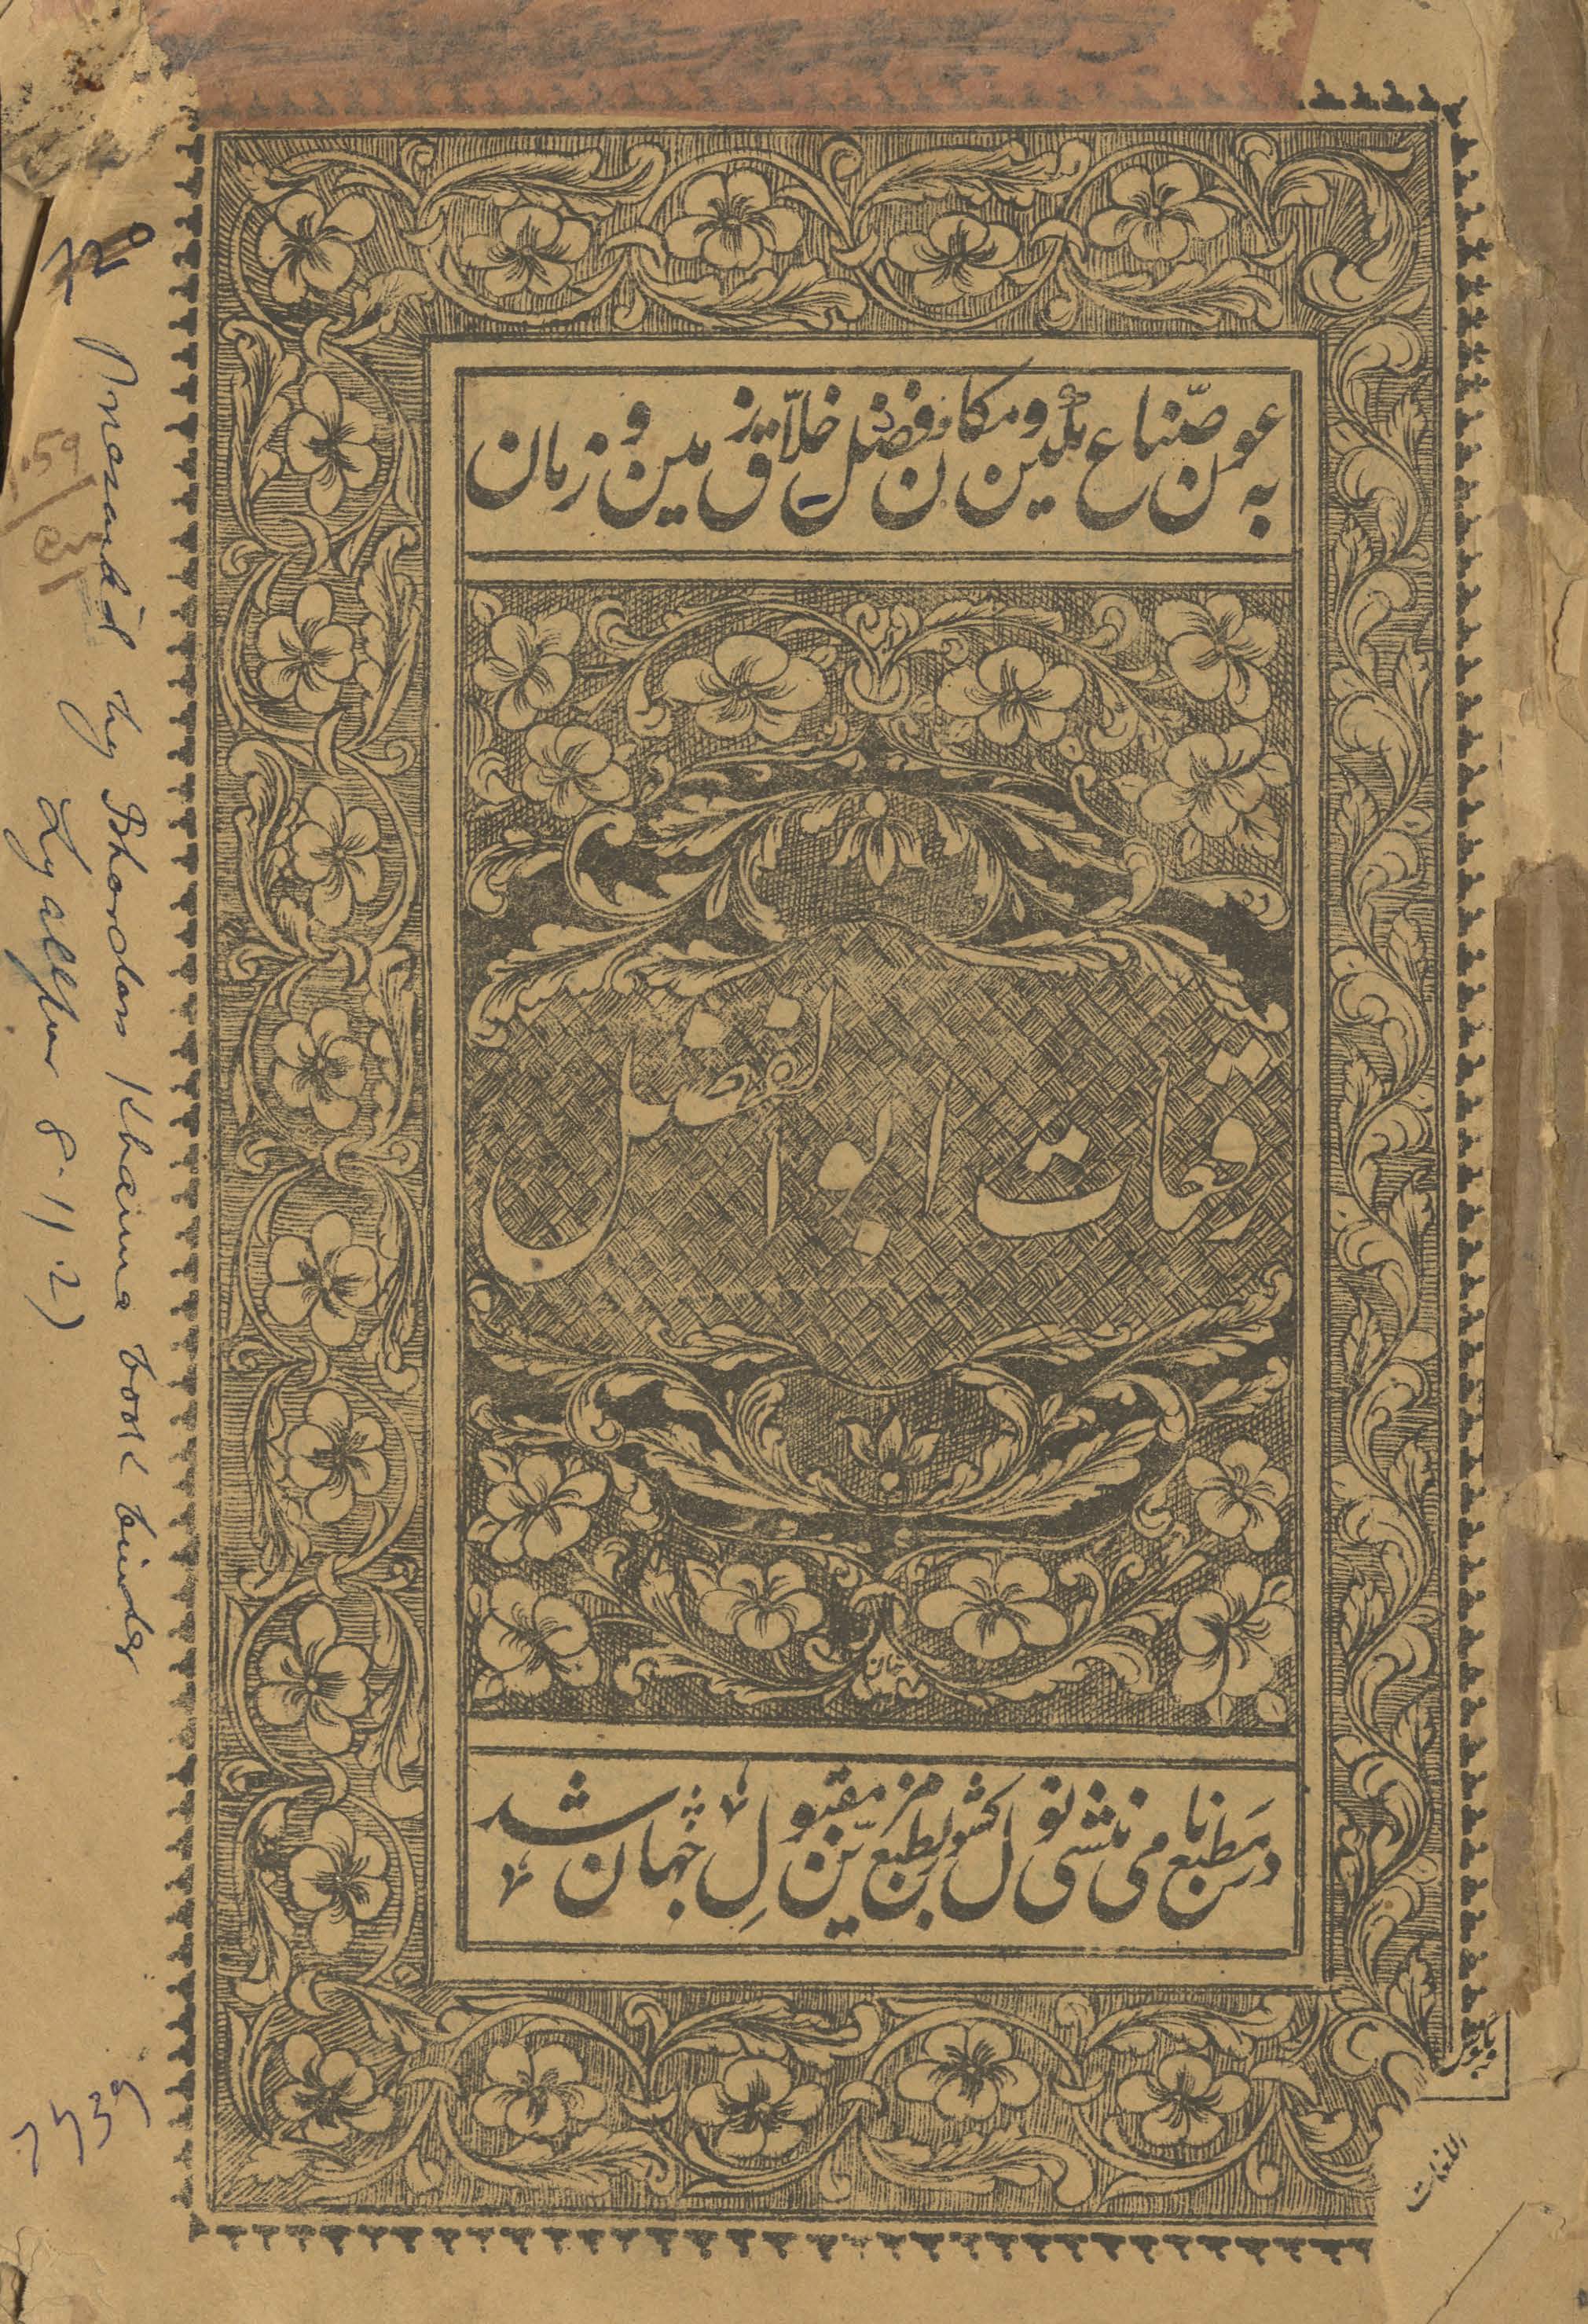 به عون صنّاع مکین و مکان و فضل خلّاق زمین و زمان
رقعات ابوالفضل
در مطبع نامی منشی نول کشور بطبع مزیّن مقبولِ جهان شد
Presented by Bhowdas Khanna book binder
Lyallpur 8.11.27
7539
اللغات